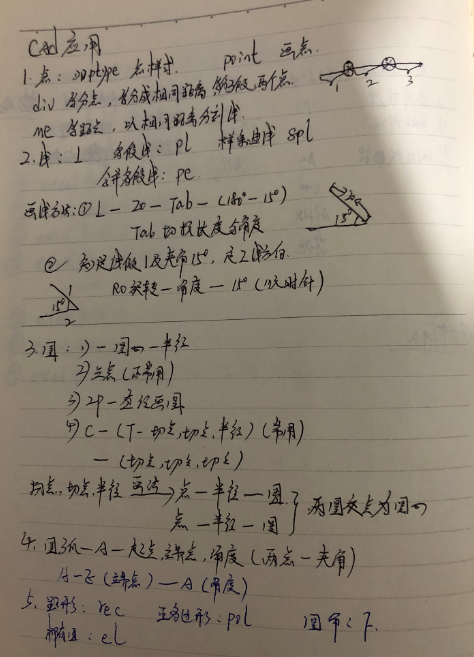 Cad应用
1. 点: ddptype 点样式. point 画点.
div 等分点, 等分成相同距离, 等3段, 两个点. 1 2 3
me 等距点, 以相同距离分割线.
2. 线: L 多段线: pl 样条曲线 spl
合并多段线: pe.
画线方法: ① L — 20 — Tab — (180° — 15°) 20 15°
Tab 切换长度与角度
② 先定线段1及夹角15°, 定2线方向. 1
RO旋转 — 角度 — 15° (顺时针) 15° 2
3. 圆: 1) — 圆心 — 半径
2) 三点 (不常用)
3) 2P — 直径画圆
4) C — (T — 切点, 切点, 半径) (常用)
— (切点, 切点, 切点)
切点, 切点, 半径 画法 点 — 半径 — 圆
点 — 半径 — 圆 } 两圆交点为圆心
4. 圆弧 — A — 起点, 端点, 角度 (两点一夹角)
A — E (端点) — A (角度)
5. 矩形: rec 正多边形: pol
椭圆: el